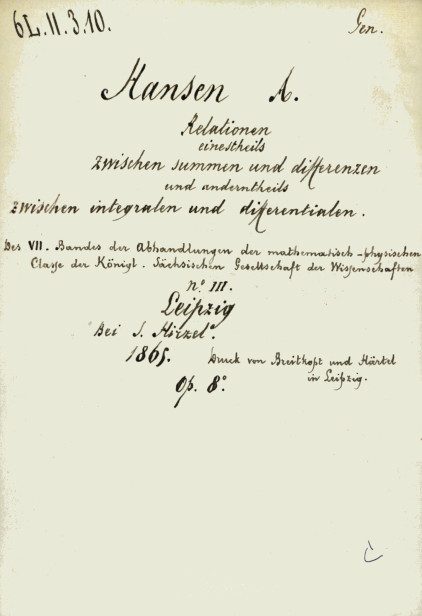 6L.11.3.10.
Gen.
Hansen A.
Relationen
einestheils
zwischen summen und differenzen
und anderntheils
zwischen integralen und differentialen.
Des VII. Bandes der Abhandlungen der mathematisch-physischen
Classe der Königl. Sächsischen Gesellschaft der Wissenschaften
nº III.
Leipzig
Bei S. Hirzel.
1865.
Druck von Breitkopf und Härtel
in Leipzig.
Op. 8º